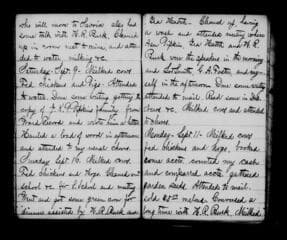 she will move to Snows. also had
some talk with W.R. Rusk. Cleaned
up in some next to mine, and atten
ded to water milking &c.
Saturday Sept 9. Milked cows
Fed chickens and Pigs. Attended
to water. Done some writing getting the
copy of J.K. Pipkins family from
Ward Record and
Hauled a load of wood in afternoon
and attended to my usual chores.
Sunday Sept 10. Milked cows
Fed chickens and Hogs. Cleaned out
school &c. for S. School and meeting
Went and got some green corn for
dinner assisted by W.R. Rusk and
Geo Heaton. Cleaned up, having
a wash and attended meeting where
Geo Pipkin, Geo Heaton and W.R.
Rusk were the speakers in the morning
and G.A. Porter, and my
self in the afternoon. Done some writing
attended to mail. Read some in
News &c. Milked cows and attended
to chores.
Monday Sept 11. Milked cows
fed chickens and Hogs, booked
some accts counted my cash
and compared accts gathered
garden seeds. Attended to mail.
sold melons. Conversed a
long time with W.R. Rusk. Milked